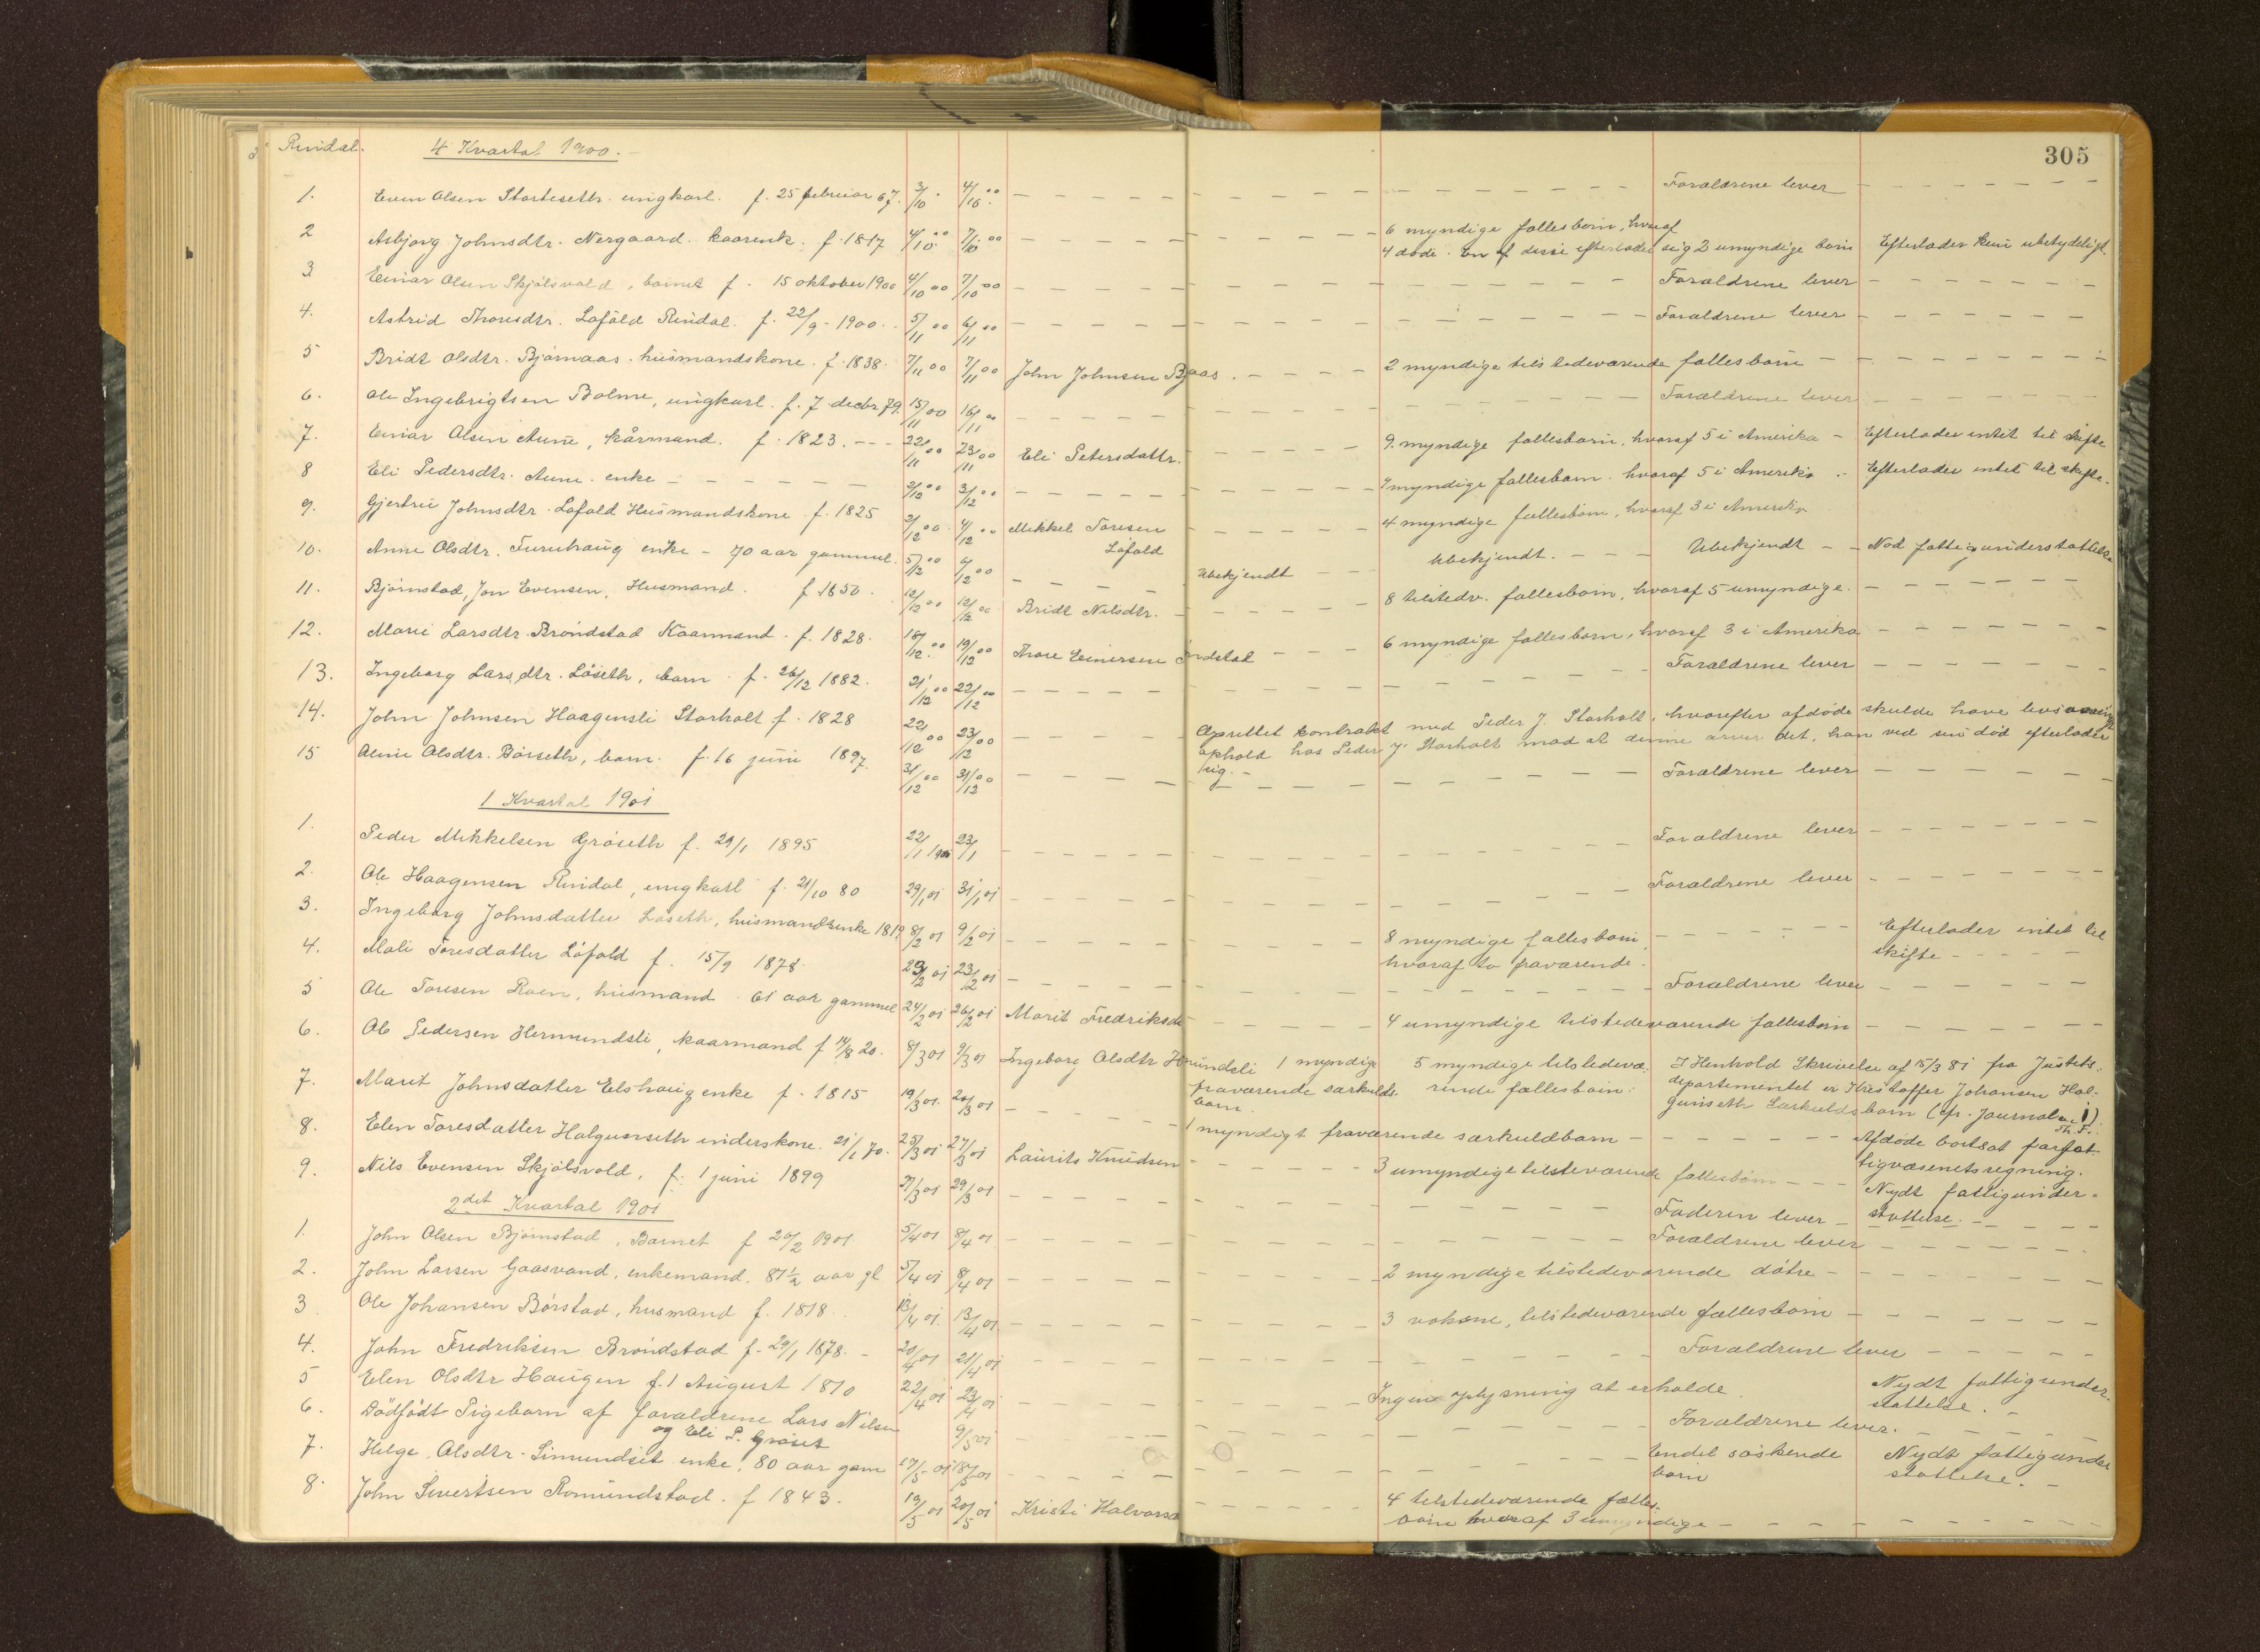 305
Rindal. 4 Kvartal 1900.
1. Even Olsen Storteseth. ungkarl. f. 25 februar 67. 3/10 4/10 00 Forældrene lever
2 Asbjørg Johnsdtr. Nergaard. kaarenk. f. 1817 4/10 00 7/10 00 6 myndige fællesbørn, hvoraf
4 døde. En af disse efterlader sig 2 umyndige børn Efterlader kun ubetydeligt
3 Einar Olsen Skjølsvold, barnet f. 15 oktober 1900 4/10 00 7/10 00 Forældrene lever
4. Astrid Thoresdtr. Løfald Rindal. f. 22/9 - 1900. 5/11 00 6/11 00 Forældrene lever
5 Bridt Olsdtr. Bjørnaas. husmandskone. f. 1838. 7/11 00 7/11 00 John Johnsen Bjaas. 2 myndige tilstedeværende fællesbørn
6. Ole Ingebrigtsen Bolme, ungkarl. f. 7 decbr 79. 15/11 00 16/11 00 Forældrene lever
7. Einar Olsen Aune, kårmand. f. 1823. 22/11 00 23/11 00 Eli Petersdattr. 9. myndige fællesbørn, hvoraf 5 i Amerika - Efterlader intet til skifte
8 Eli Pedersdtr. Aune. enke 2/12 00 3/12 00 myndige fællesbørn. hvoraf 5 i Amerika. Efterlader intet til skifte.
9. Gjertrui Johnsdtr. Løfald Husmandskone f. 1825 2/12 00 4/12 00 Mikkel Toresen
Løfald 4 myndige fællesbørn, hvoraf 3 i Amerika
10. Anne Olsdtr. Furuhaug enke - 70 aar gammel. 5/12 00 6/12 00 Ubekjendt Ubekjendt. Ubekjendt Nød fattigunderstøttelse
11. Bjørnstad, Jon Evensen, Husmand. f 1850. 12/12 00 12/12 00 Bridt Nilsdtr. 8 tilstedv. fællesbørn, hvoraf 5 umyndige.
12. Marie Larsdtr. Brøndstad Kaarmand. f. 1828. 18/12 00 19/12 00 Thore Einersen Øndstad 6 myndige fællesbørn, hvoraf 3 i Amerika
13. Ingeborg Larsdtr. Løseth, barn f. 26/12 1882. 21/12 00 22/12 00 Forældrene lever
14. John Johnsen Haagensli Storholt f. 1828 22/12 00 23/12 00 Oprettet kontrakt med Peder J. Storholt, hvorefter afdøde skulde have
ophold hos Peder J. Storholt mod at denne arver det, han ved sin død efterlader
sig.
15 Aline Olsdtr. Børseth, barn. f. 16 juni 1897. 31/12 00 31/12 00 Forældrene lever
1 Kvartal 1901
1. Peder Mikkelsen Grøseth f. 29/1 1895 22/1 1901 23/1 Forældrene lever
2. Ole Haagensen Rindal, ungkarl f. 21/10 80 29/1 01 31/1 01 Forældrene lever
3. Ingeborg Johnsdatter Løseth, husmandsenke 1819 8/2 01 9/2 01 8 myndige fællesbørn, Efterlader intet til
hvoraf to fraværende. skifte
4. Mali Toresdatter Løfald f. 15/9 1878. 23/2 01 23/2 01 Forældrene lever
5 Ole Toresen Roen, husmand. 61 aar gammel 24/2 01 26/2 01 Marit Fredriksd 4 umyndige tilstedeværende fællesbørn
6. Ole Pedersen Hermundsli, kaarmand f 14/8 20. 8/3 01 9/3 01 Ingeborg Olsdtr Hmundsli 1 myndige 5 myndige tilstedevæ- I Henhold Skrivelse af 15/3 81 fra Justits-
fraværende særkulds- rende fællesbørn. departementet er Kristoffer Johansen Hal-
barn. gunseth Særkuldsbarn (cfr. Journal i)
7. Marit Johnsdatter Elshaug enke f. 1815 19/3 01. 20/3 01 1 myndigt fraværende særkuldbarn Afdøde bortsat for fat-
tigvæsenets regning.
8. Elen Toresdatter Halgunseth inderskone. 21/1 70. 25/3 01 27/3 01 Laurits Knudsen 3 umyndige tilsteværende fællesbørn Nydt fattigunder-
støttelse.
9. Nils Evensen Skjølsvold, f. 1 juni 1899 27/3 01 29/3 01 Faderen lever
2det Kvartal 1901
1. John Olsen Bjørnstad, Barnet f 20/2 1901 5/4 01 8/4 01 Forældrene lever
2. John Larsen Gaasvand, enkemand. 87 1/2 aar gl. 5/4 01 8/4 01 2 myndige tilstedeværende døtre
3 Ole Johansen Børstad, husmand f. 1818. 13/4 01. 13/4 01 3 voksne, tilstedeværende fællesbørn
4. John Fredriksen Brøndstad f. 29/1 1878. 20/4 01 21/4 01 Forældrene lever
5 Elen Olsdtr Haugen f. 1 August 1810 22/4 01 23/4 01 Ingen oplysning at erholde. Nydt fattigunder-
støttelse.
6. Dødfødt Pigebarn af forældrene Lars Nilsen
og Eli P. Grøset 9/5 01 Forældrene lever.
7. Helge Olsdtr. Simundset enke, 80 aar gam 17/5 01 18/5 01 Endel søskende Nydt fattigunder
børn støttelse.
8. John Sivertsen Romundstad. f 1843. 19/5 01 20/5 01 Kristi Halvorsd 4 tilstedeværende fælles-
børn hvoraf 3 umyndige